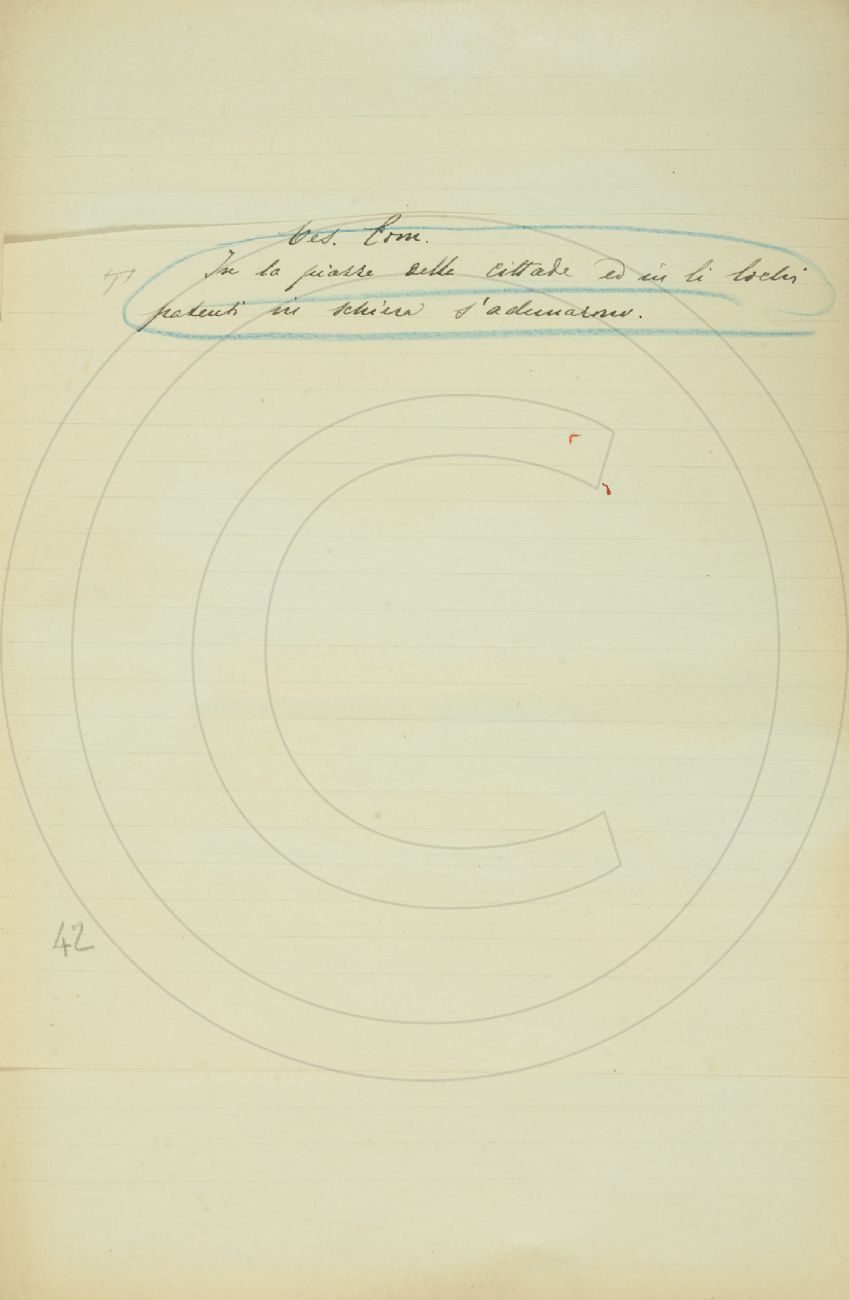 Ves. Com.
In la piazze delle cittade ed in li lochi
patenti in schiera s'adunarono.
42